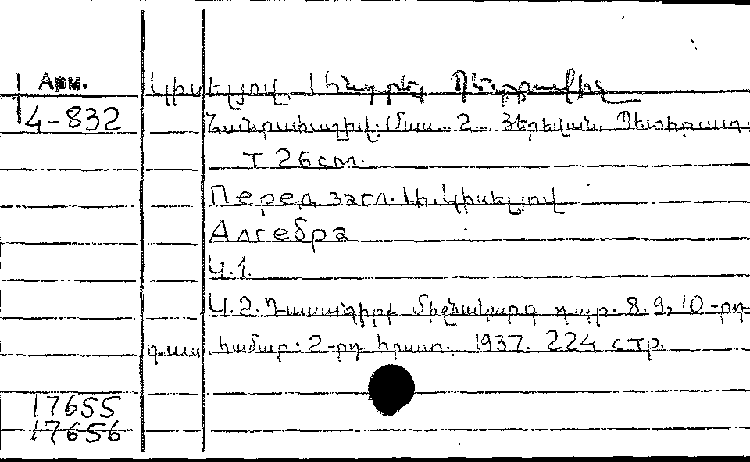 Арм.
Կիսելյով, Անդրեյ Պետրովիչ
4-832
Հանրահաշիվ. Մաս 2. Երևան, Պետհրատ.
т 26 см.
Перед загл. Ա. Կիսելյով
Алгебра
Ч.1.
Ч.2. Դասագիրք միջնակարգ դպր. 8, 9, 10-րդ
դաս. համար. 2-րդ հրատ. 1937. 224 стр.
17655
17656